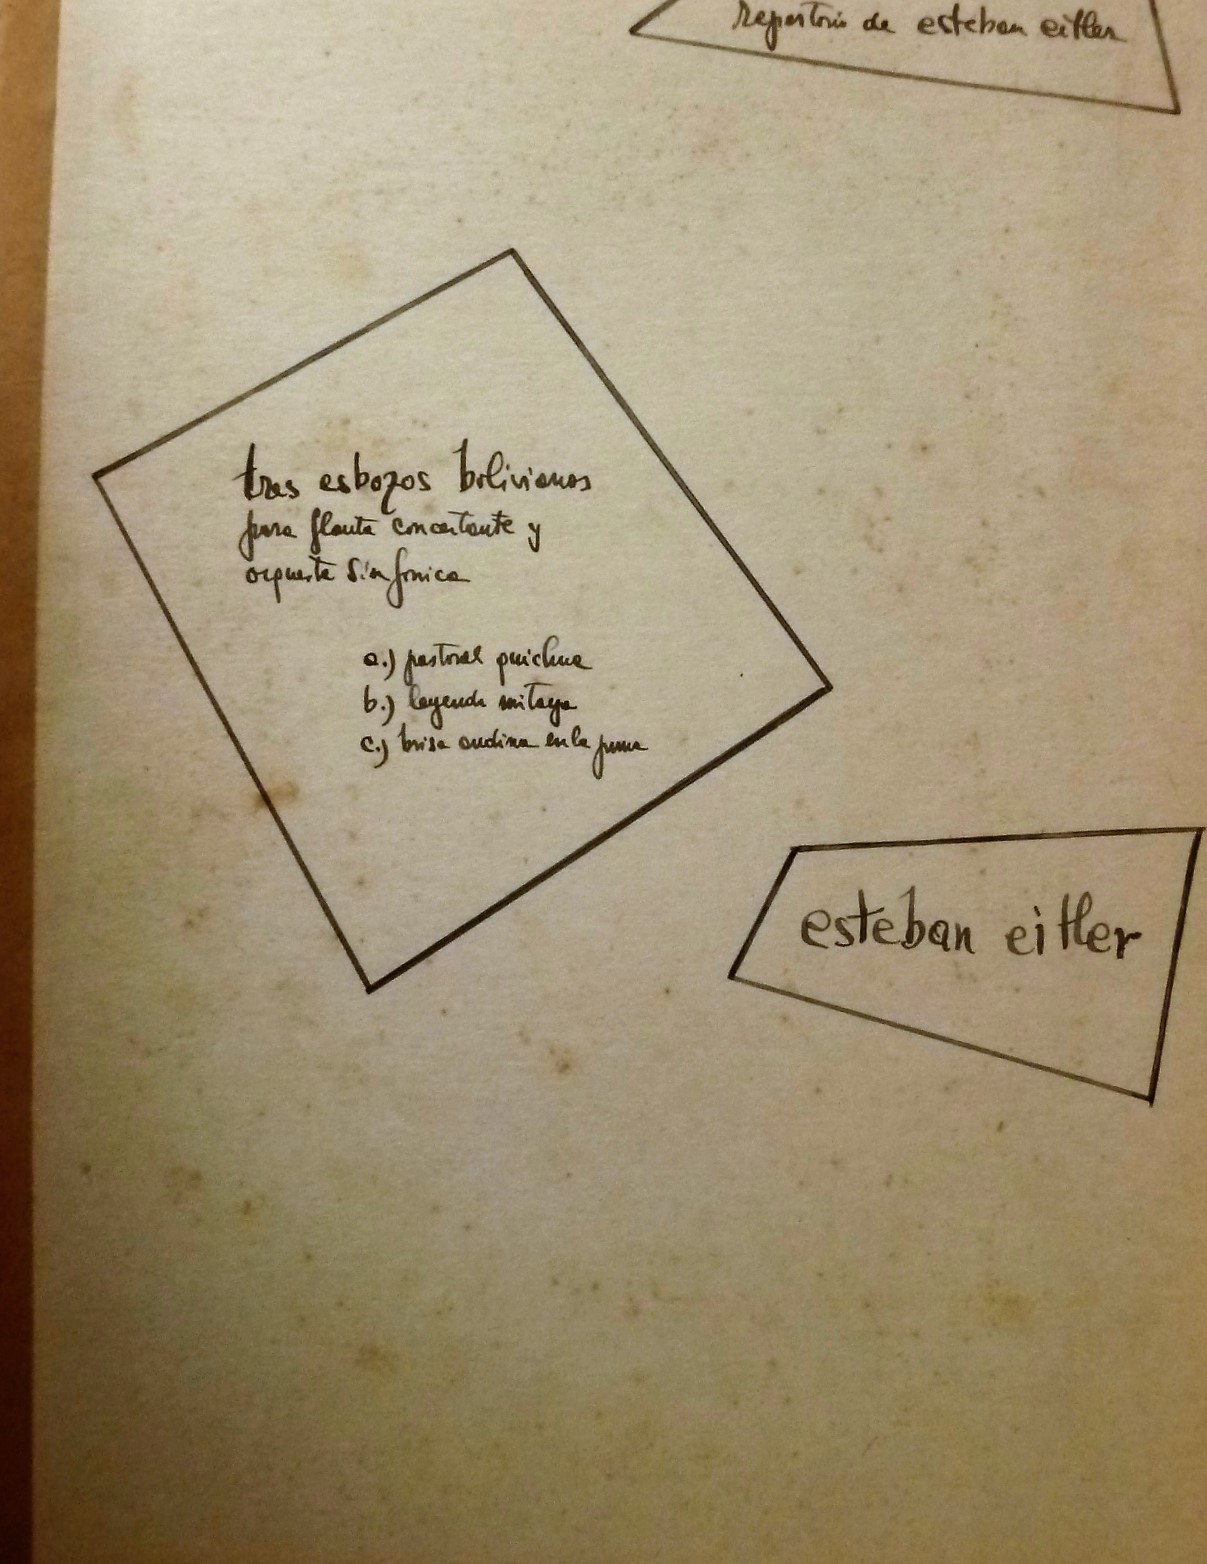 repertorio de esteban eitler
tres esbozos bolivianos
para flauta concertante y
orquesta sinfonica
a.) pastoral quichua
b.) leyenda mitaya
c.) brisa andina en la puna
esteban eitler